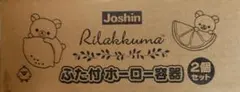 Joshin
Rilakkuma
ふた付ホーロー容器
2個
セット